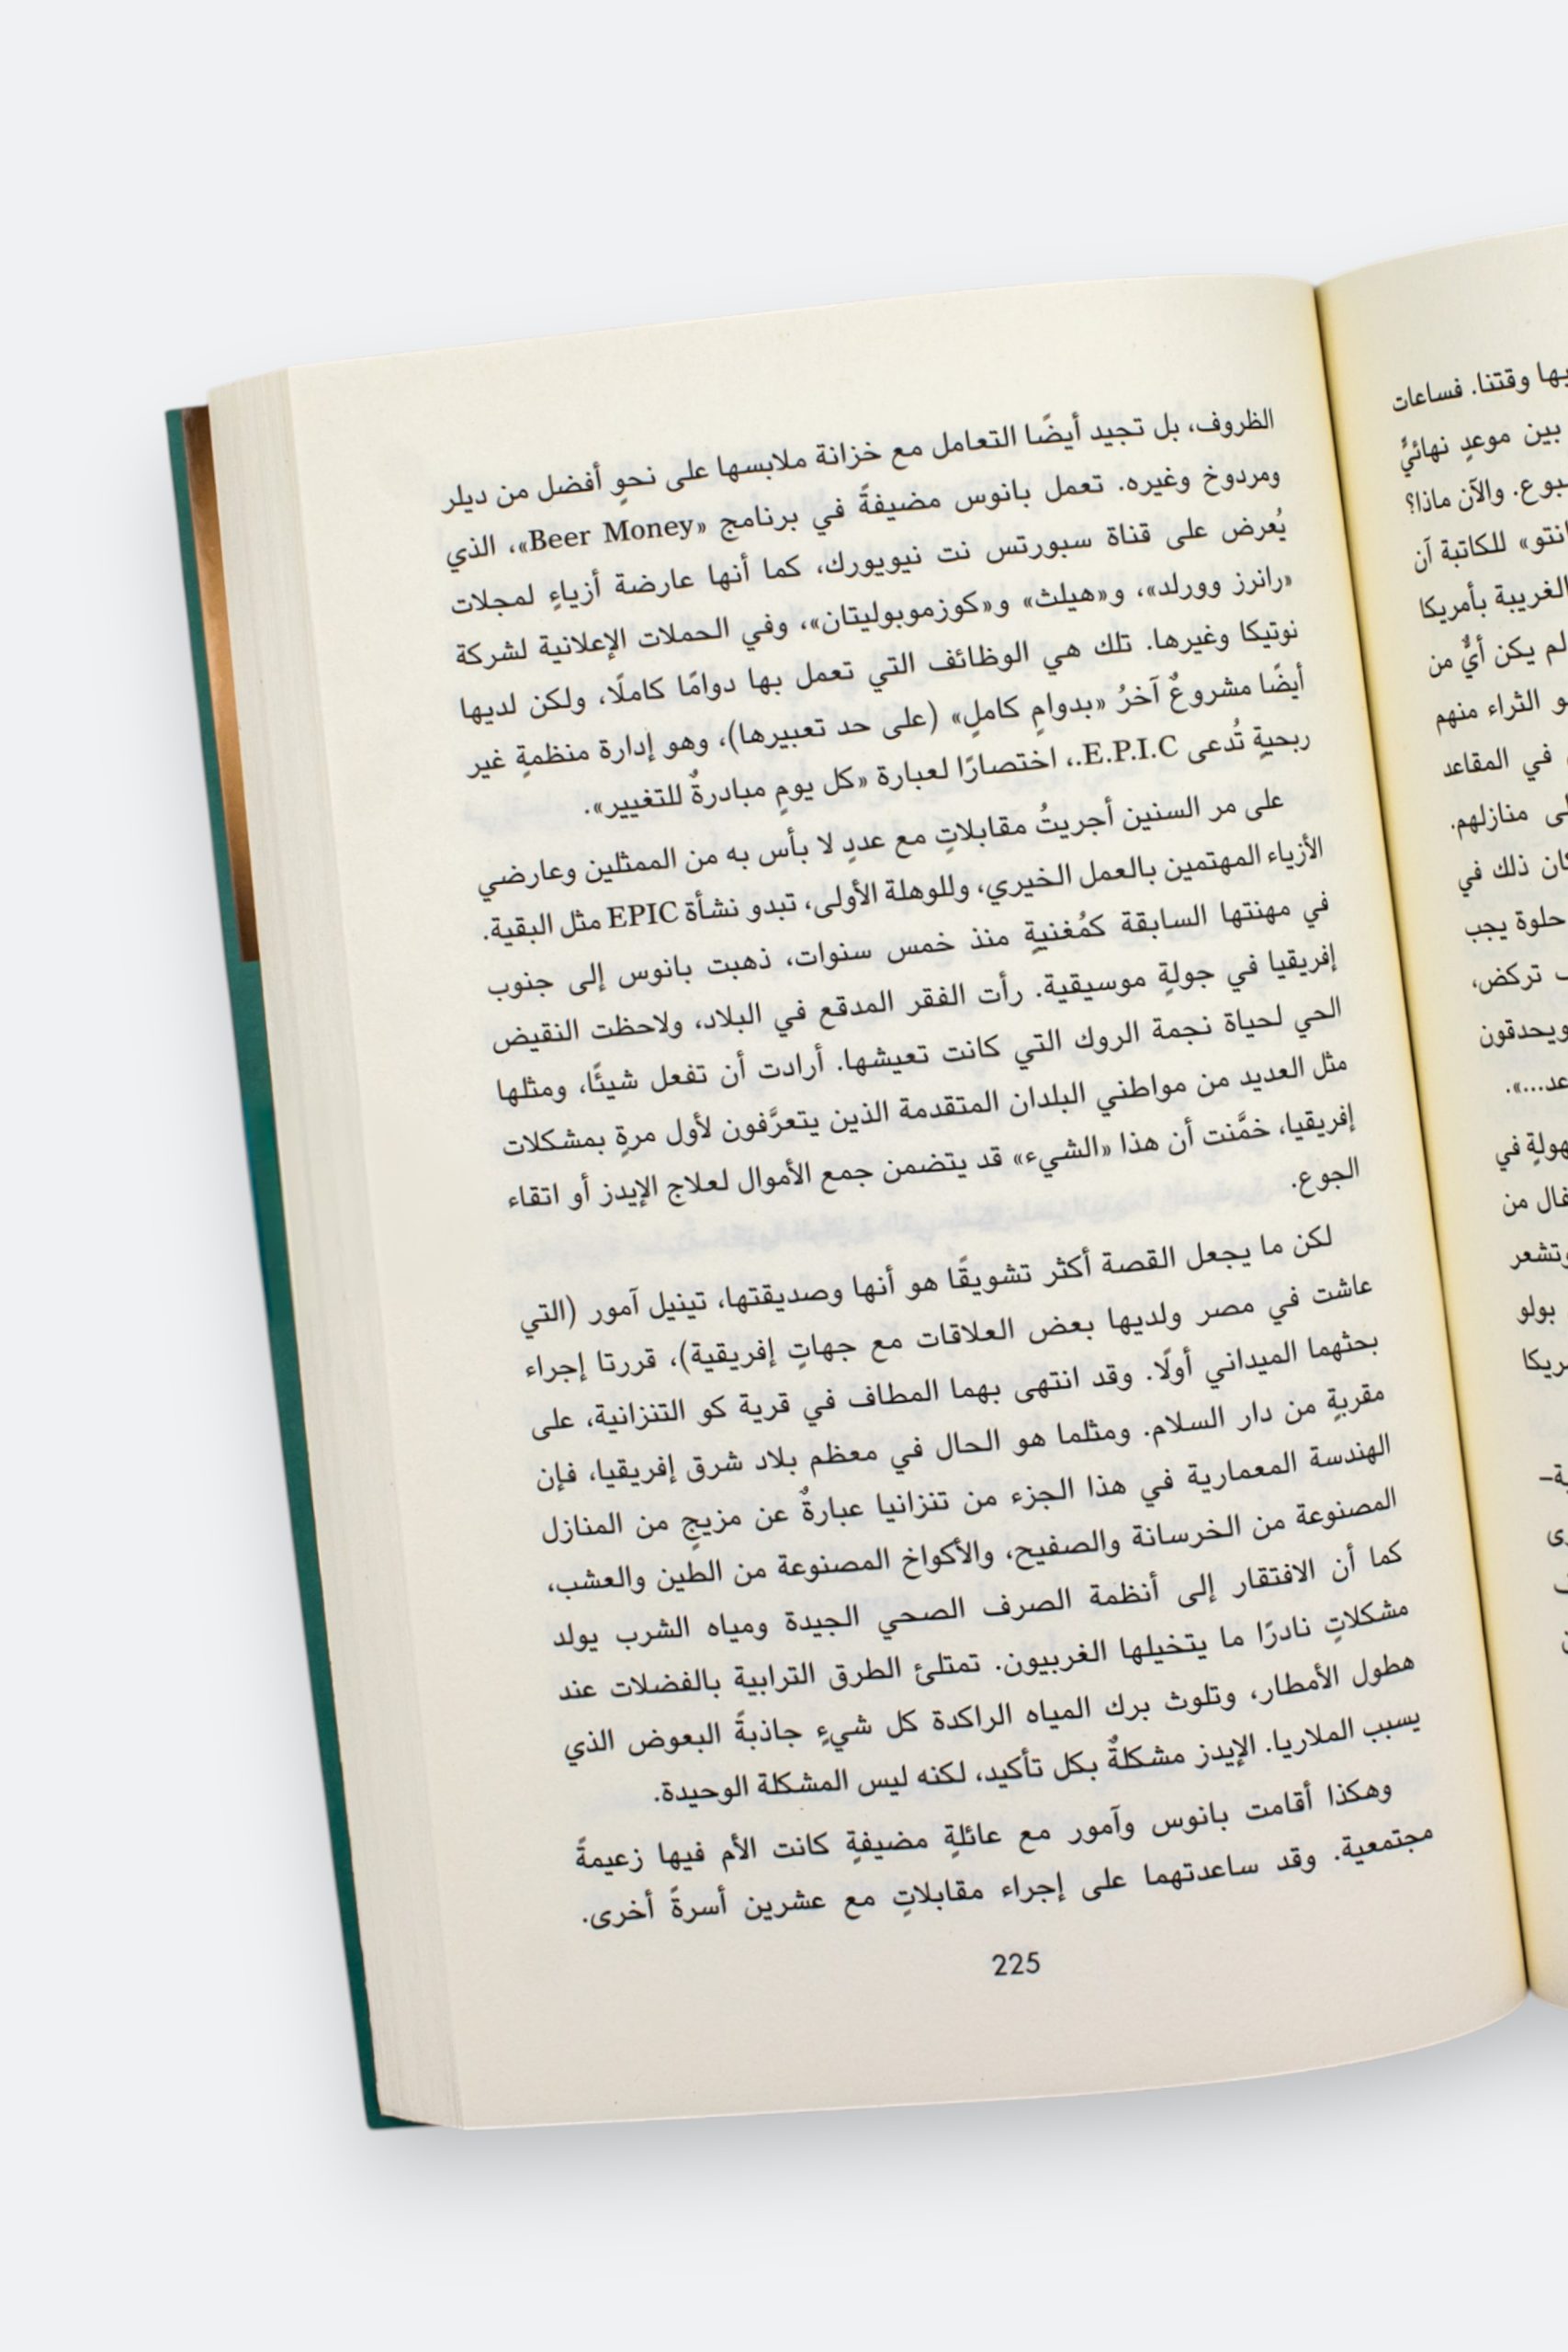 يها وقتنا. فساعات
بين موعدٍ نهائيٍّ
سبوع. والآن ماذا؟
للكاتبة آن
الغريبة بأمريكا
لم يكن أيٌّ من
الثراء منهم
في المقاعد
منازلهم.
كان ذلك في
حلوة يجب
تركض،
ويحدقون
عد...».
هولةٍ في
من
وتشعر
بولو
الظروف، بل تجيد أيضًا التعامل مع خزانة ملابسها على نحوٍ أفضل من ديلر
ومردوخ وغيره. تعمل بانوس مضيفةً في برنامج «Beer Money»، الذي
يُعرض على قناة سبورتس نت نيويورك، كما أنها عارضة أزياءٍ لمجلات
«رانرز وورلد»، و«هيلث» و«كوزموبوليتان»، وفي الحملات الإعلانية لشركة
نوتيكا وغيرها. تلك هي الوظائف التي تعمل بها دوامًا كاملًا، ولكن لديها
أيضًا مشروعٌ آخرُ «بدوامٍ كاملٍ» (على حد تعبيرها)، وهو إدارة منظمةٍ غير
ربحيةٍ تُدعى E.P.I.C.، اختصارًا لعبارة «كل يومٍ مبادرةٌ للتغيير».
على مر السنين أجريتُ مقابلاتٍ مع عددٍ لا بأس به من الممثلين وعارضي
الأزياء المهتمين بالعمل الخيري، وللوهلة الأولى، تبدو نشأة EPIC مثل البقية.
في مهنتها السابقة كمُغنيةٍ منذ خمس سنوات، ذهبت بانوس إلى جنوب
إفريقيا في جولةٍ موسيقية. رأت الفقر المدقع في البلاد، ولاحظت النقيض
الحي لحياة نجمة الروك التي كانت تعيشها. أرادت أن تفعل شيئًا، ومثلها
مثل العديد من مواطني البلدان المتقدمة الذين يتعرَّفون لأول مرةٍ بمشكلات
إفريقيا، خمَّنت أن هذا «الشيء» قد يتضمن جمع الأموال لعلاج الإيدز أو اتقاء
الجوع.
لكن ما يجعل القصة أكثر تشويقًا هو أنها وصديقتها، تينيل آمور (التي
عاشت في مصر ولديها بعض العلاقات مع جهاتٍ إفريقية)، قررتا إجراء
بحثهما الميداني أولًا. وقد انتهى بهما المطاف في قرية كو التنزانية، على
مقربةٍ من دار السلام. ومثلما هو الحال في معظم بلاد شرق إفريقيا، فإن
الهندسة المعمارية في هذا الجزء من تنزانيا عبارةٌ عن مزيجٍ من المنازل
المصنوعة من الخرسانة والصفيح، والأكواخ المصنوعة من الطين والعشب،
كما أن الافتقار إلى أنظمة الصرف الصحي الجيدة ومياه الشرب يولد
مشكلاتٍ نادرًا ما يتخيلها الغربيون. تمتلئ الطرق الترابية بالفضلات عند
هطول الأمطار، وتلوث برك المياه الراكدة كل شيءٍ جاذبةً البعوض الذي
يسبب الملاريا. الإيدز مشكلةٌ بكل تأكيد، لكنه ليس المشكلة الوحيدة.
وهكذا أقامت بانوس وآمور مع عائلةٍ مضيفةٍ كانت الأم فيها زعيمةً
مجتمعية. وقد ساعدتهما على إجراء مقابلاتٍ مع عشرين أسرةً أخرى.
225